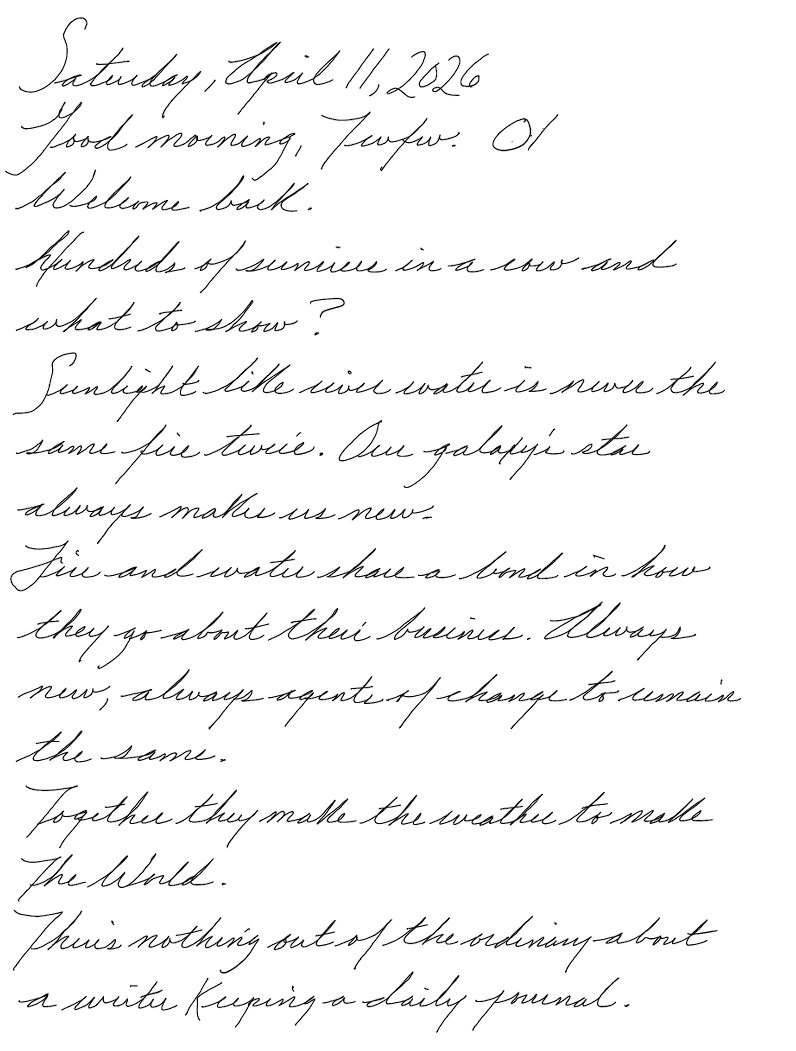 Saturday, April 11, 2026
Good morning, Twfw. 01
Welcome back.
Hundreds of sunrises in a row and
what to show?
Sunlight like river water is never the
same fire twice. Our galaxy's star
always makes us new.
Fire and water share a bond in how
they go about their business. Always
new, always agents of change to remain
the same.
Together they make the weather to make
The World.
There's nothing out of the ordinary about
a writer keeping a daily journal.